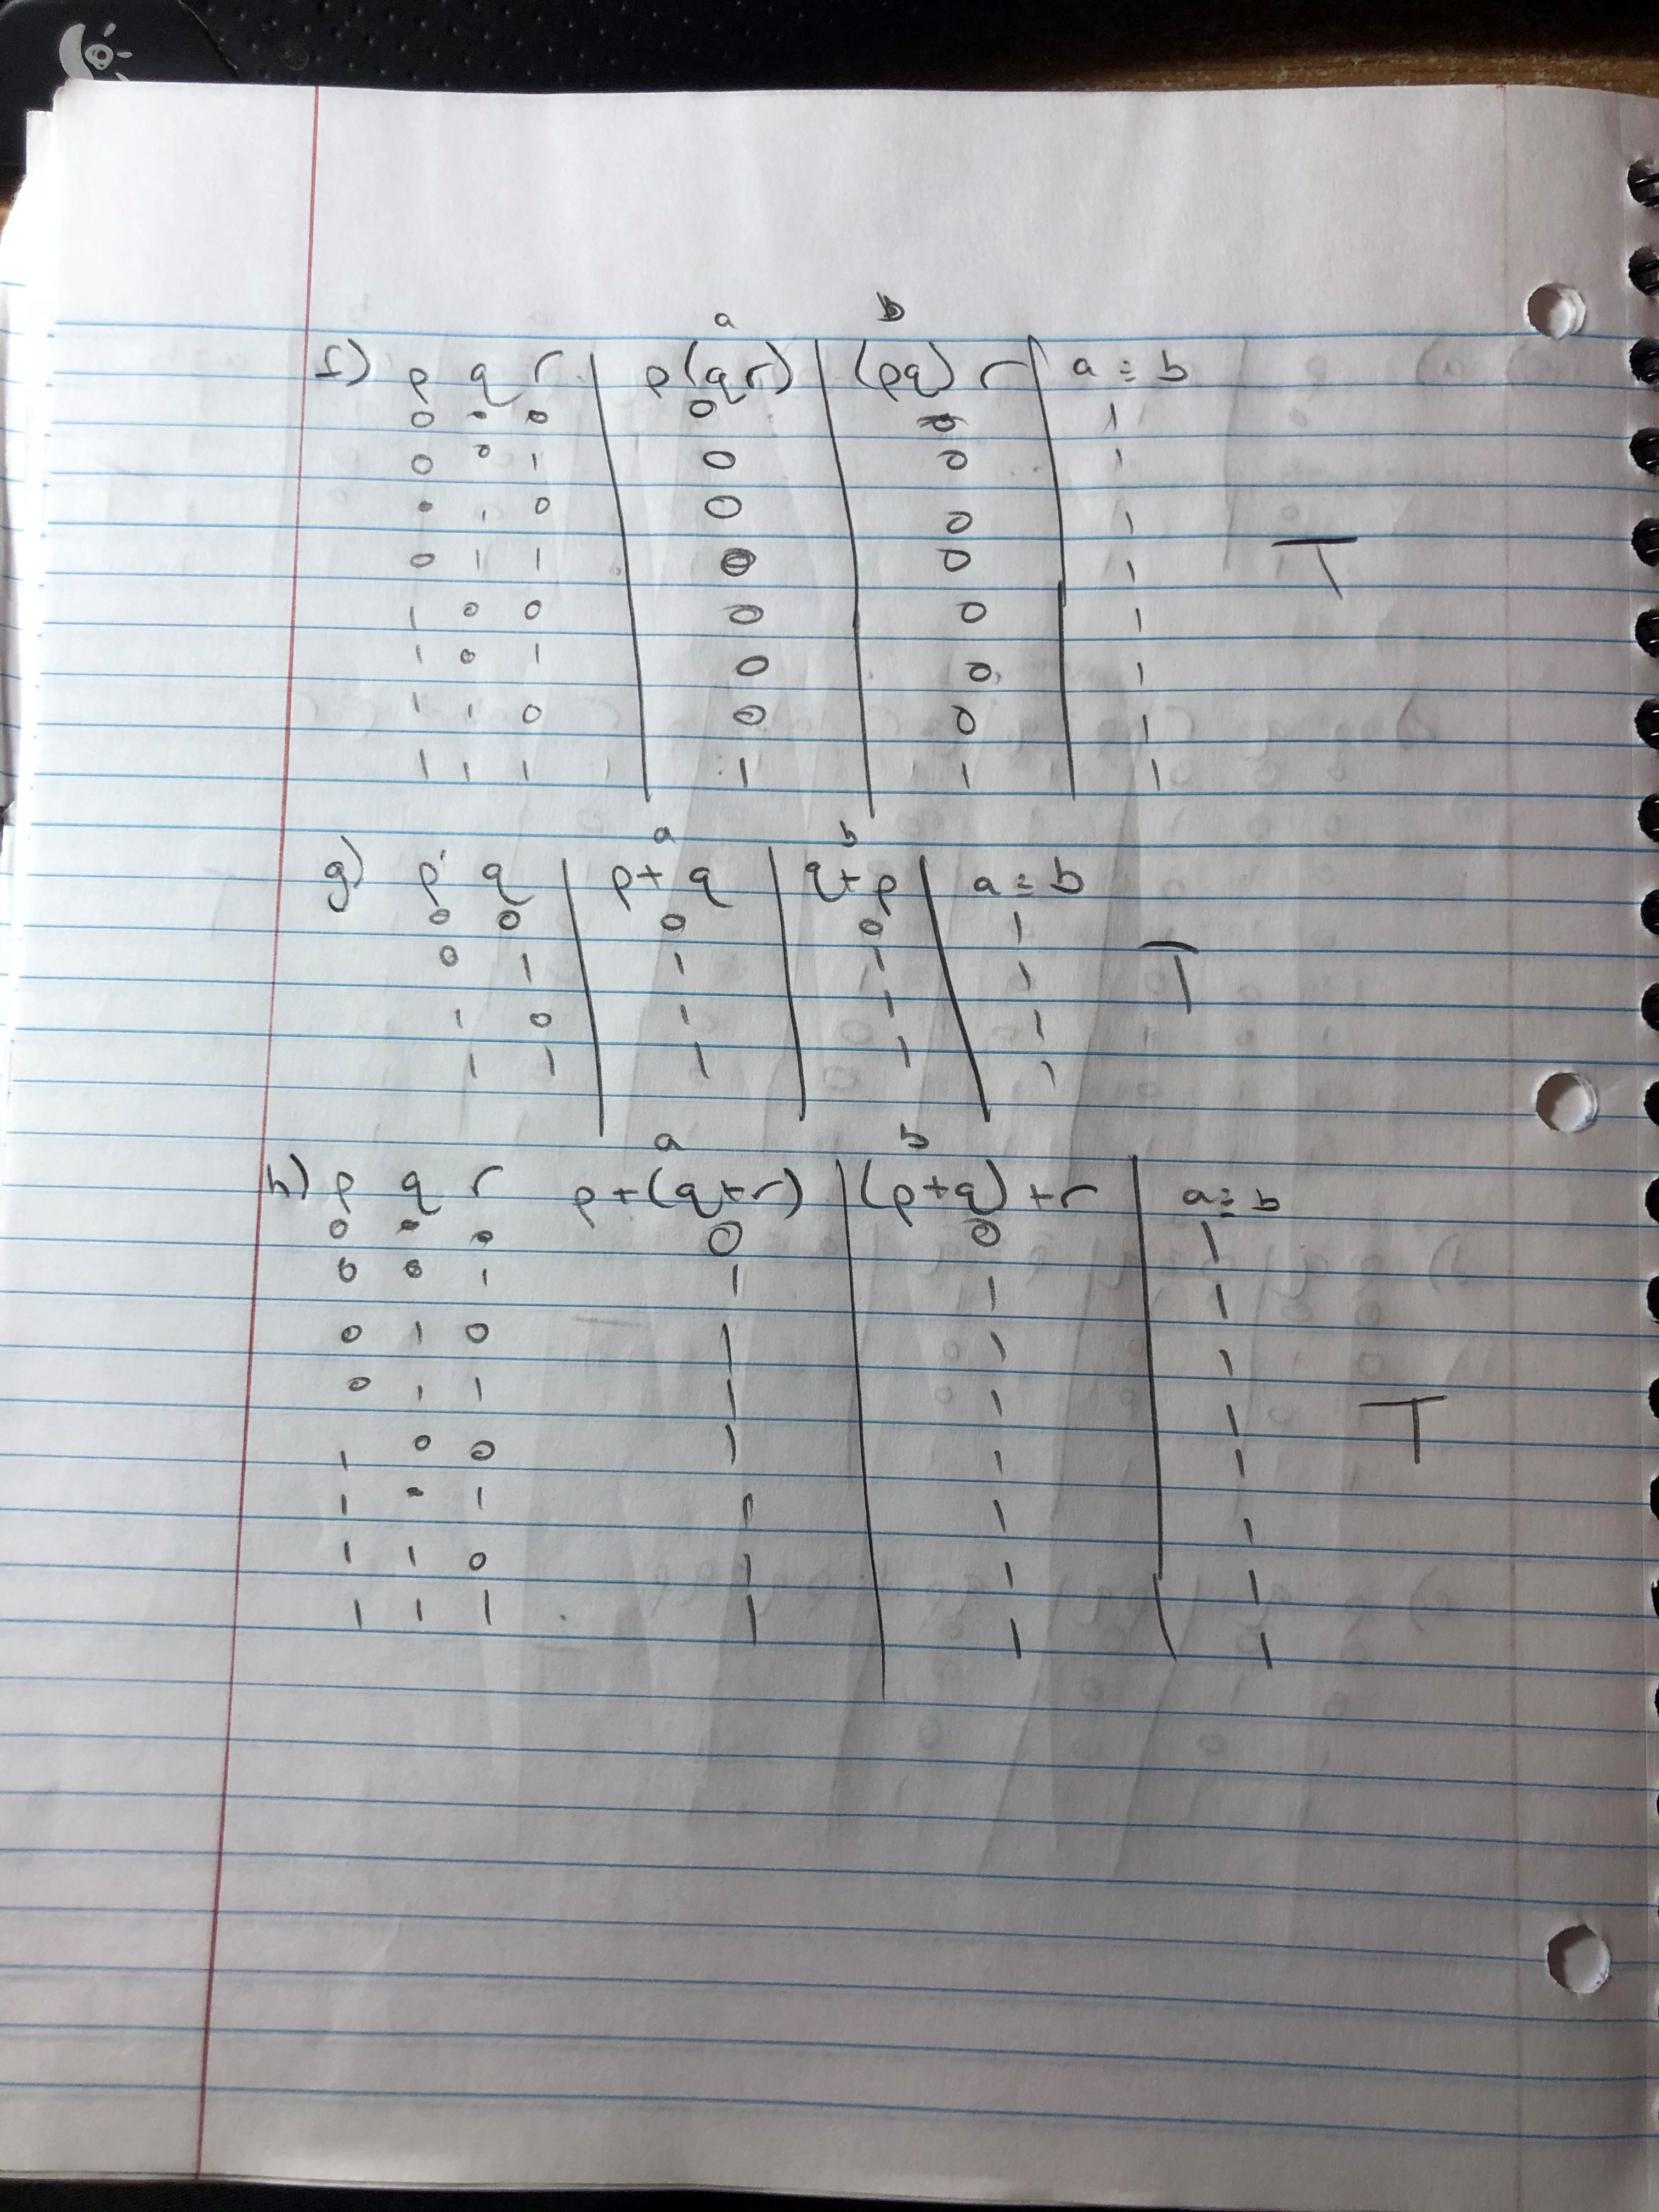 a b
f) p q r | p(qr) | (pq) r | a = b
0 0 0 0 0 1
0 0 1 0 0 1
0 1 0 0 0 1
0 1 1 0 0 1 T
1 0 0 0 0 1
1 0 1 0 0 1
1 1 0 0 0 1
1 1 1 1 1 1
a b
g) p q | p+q | q+p | a = b
0 0 0 0 1
0 1 1 1 1 T
1 0 1 1 1
1 1 1 1 1
a b
h) p q r p+(q+r) | (p+q)+r | a = b
0 0 0 0 0 1
0 0 1 1 1 1
0 1 0 1 1 1
0 1 1 1 1 1 T
1 0 0 1 1 1
1 0 1 1 1 1
1 1 0 1 1 1
1 1 1 1 1 1